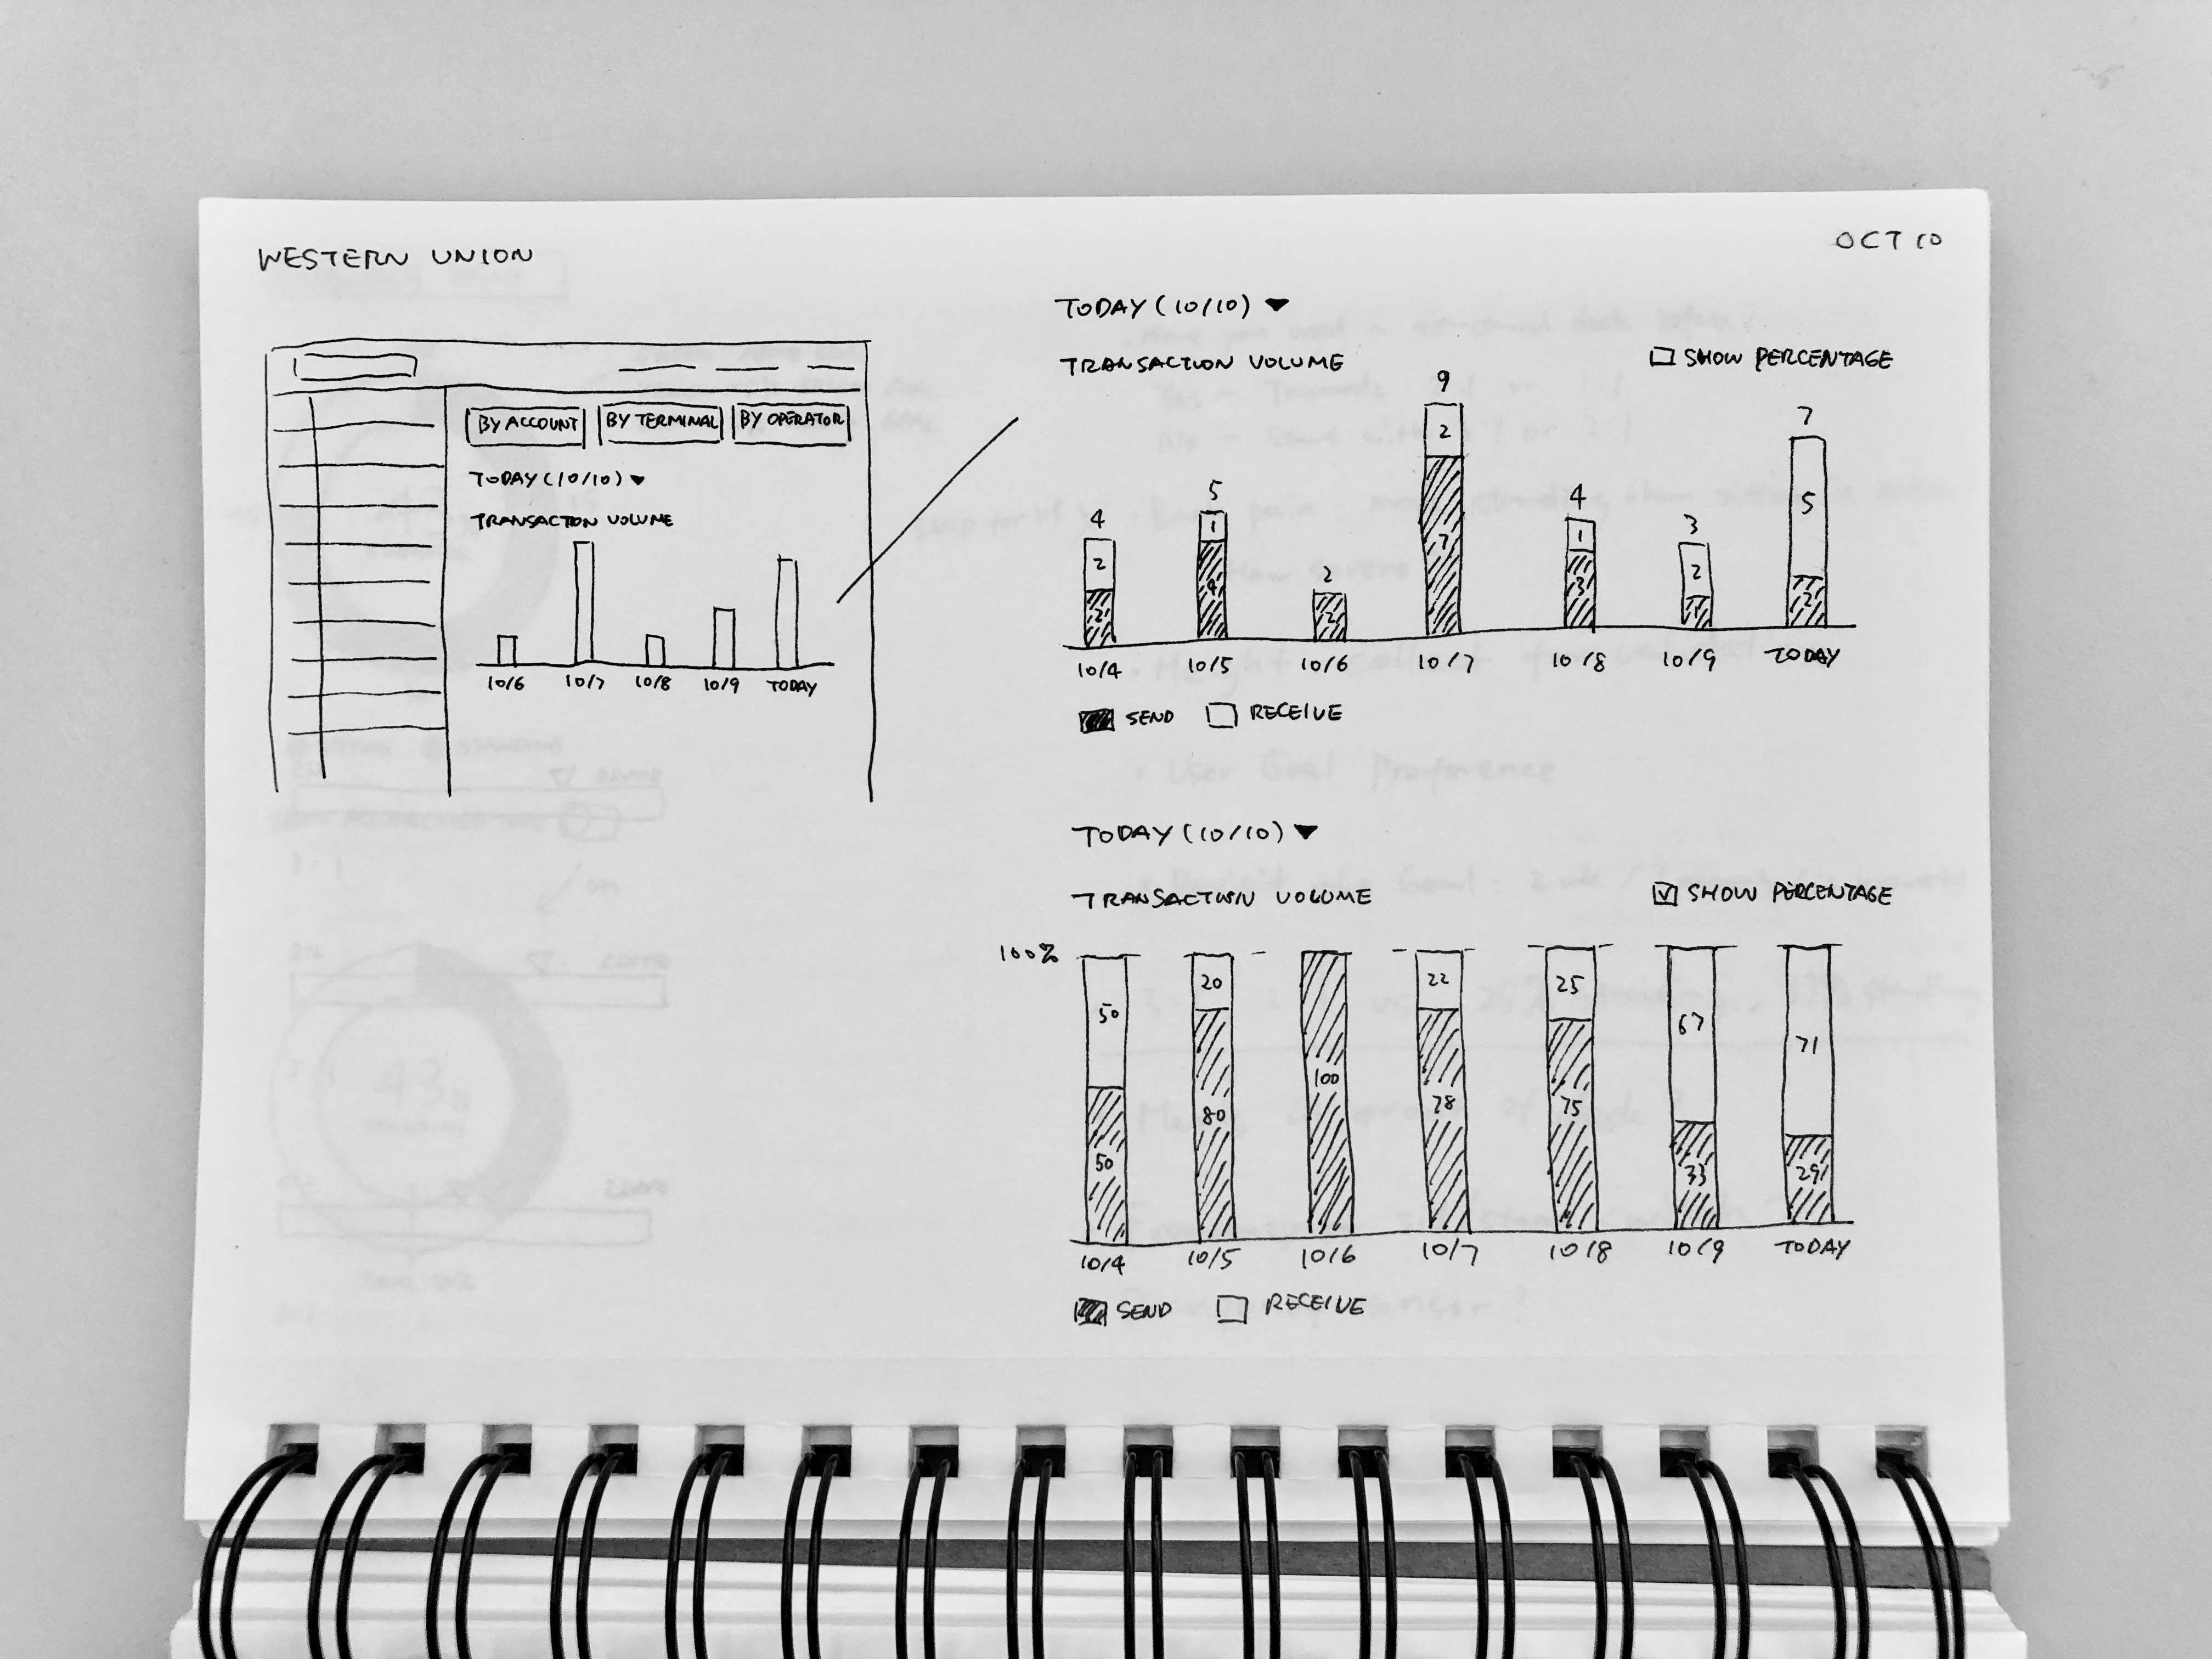 WESTERN UNION
OCT 10
BY ACCOUNT BY TERMINAL BY OPERATOR
TODAY (10/10)
TRANSACTON VOLUME
10/6 10/7 10/8 10/9 TODAY
TODAY (10/10)
TRANSACTION VOLUME
SHOW PERCENTAGE
4 5 2 9 4 3 7
2 1 2 1 2 5
2 4 2 7 3 1 2
10/4 10/5 10/6 10/7 10/8 10/9 TODAY
SEND RECEIVE
TODAY (10/10)
TRANSACTION VOLUME
SHOW PERCENTAGE
100%
50 20 22 25 67 71
50 80 100 78 75 33 29
10/4 10/5 10/6 10/7 10/8 10/9 TODAY
SEND RECEIVE